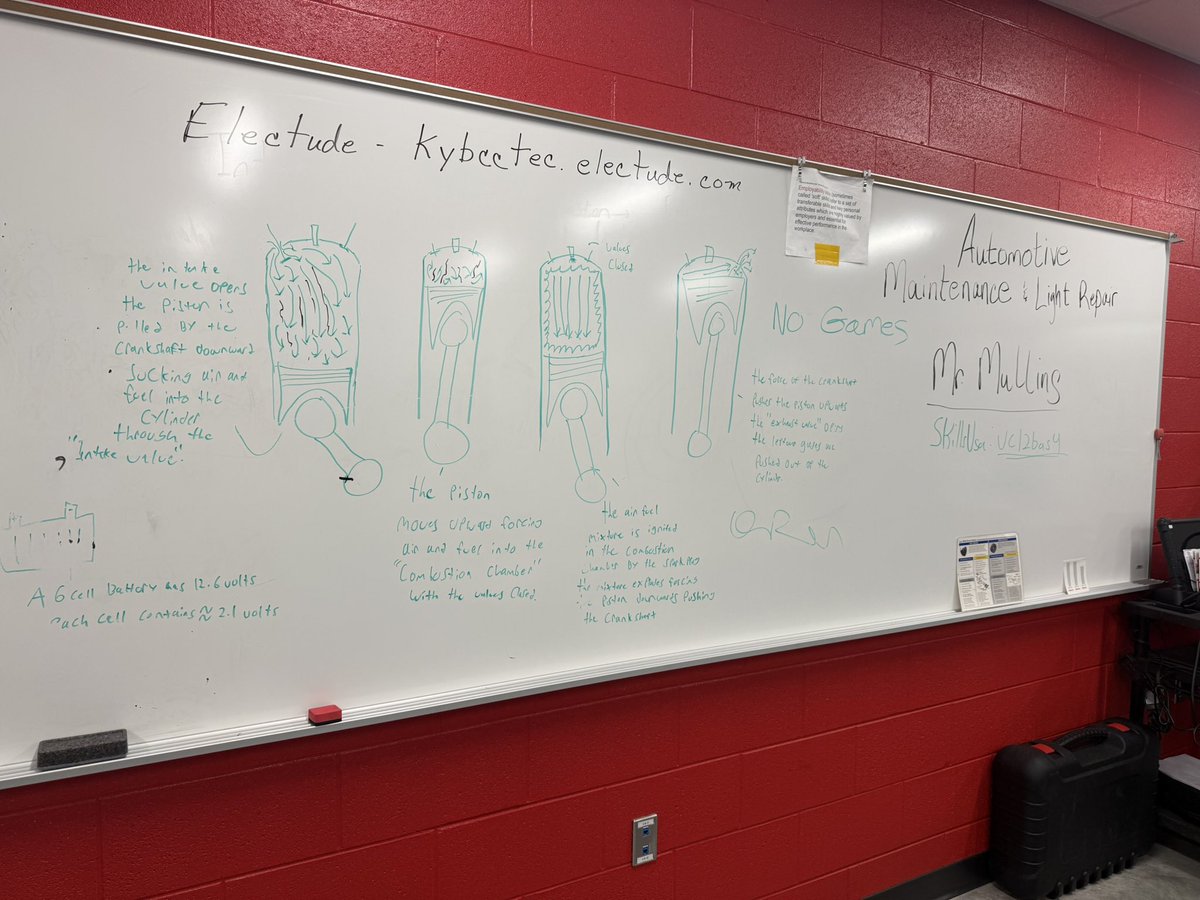 Electude - Kybcctec.electude.com
the intake
valve opens
the piston is
pulled by the
crankshaft downward
sucking air and
fuel into the
cylinder
through the
"Intake valve".
the piston
moves upward forcing
air and fuel into the
"Combustion Chamber"
with the valves closed.
valves
closed
the air fuel
mixture is ignited
in the combustion
chamber by the spark plug
the mixture explodes forcing
piston downwards pushing
the crankshaft
NO Games
the force of the crankshaft
pushes the piston upwards
the "exhaust valve" opens
the leftover gases are
pushed out of the
cylinder.
A 6 cell battery has 12.6 volts
each cell contains ≈ 2.1 volts
Employability skills (sometimes
called 'soft' skills) refer to a set of
transferable skills and key personal
attributes which are highly valued by
employers and essential for
effective performance in the
workplace.
Automotive
Maintenance & Light Repair
Mr Mullins
SkillsUsa: UCL2bas4